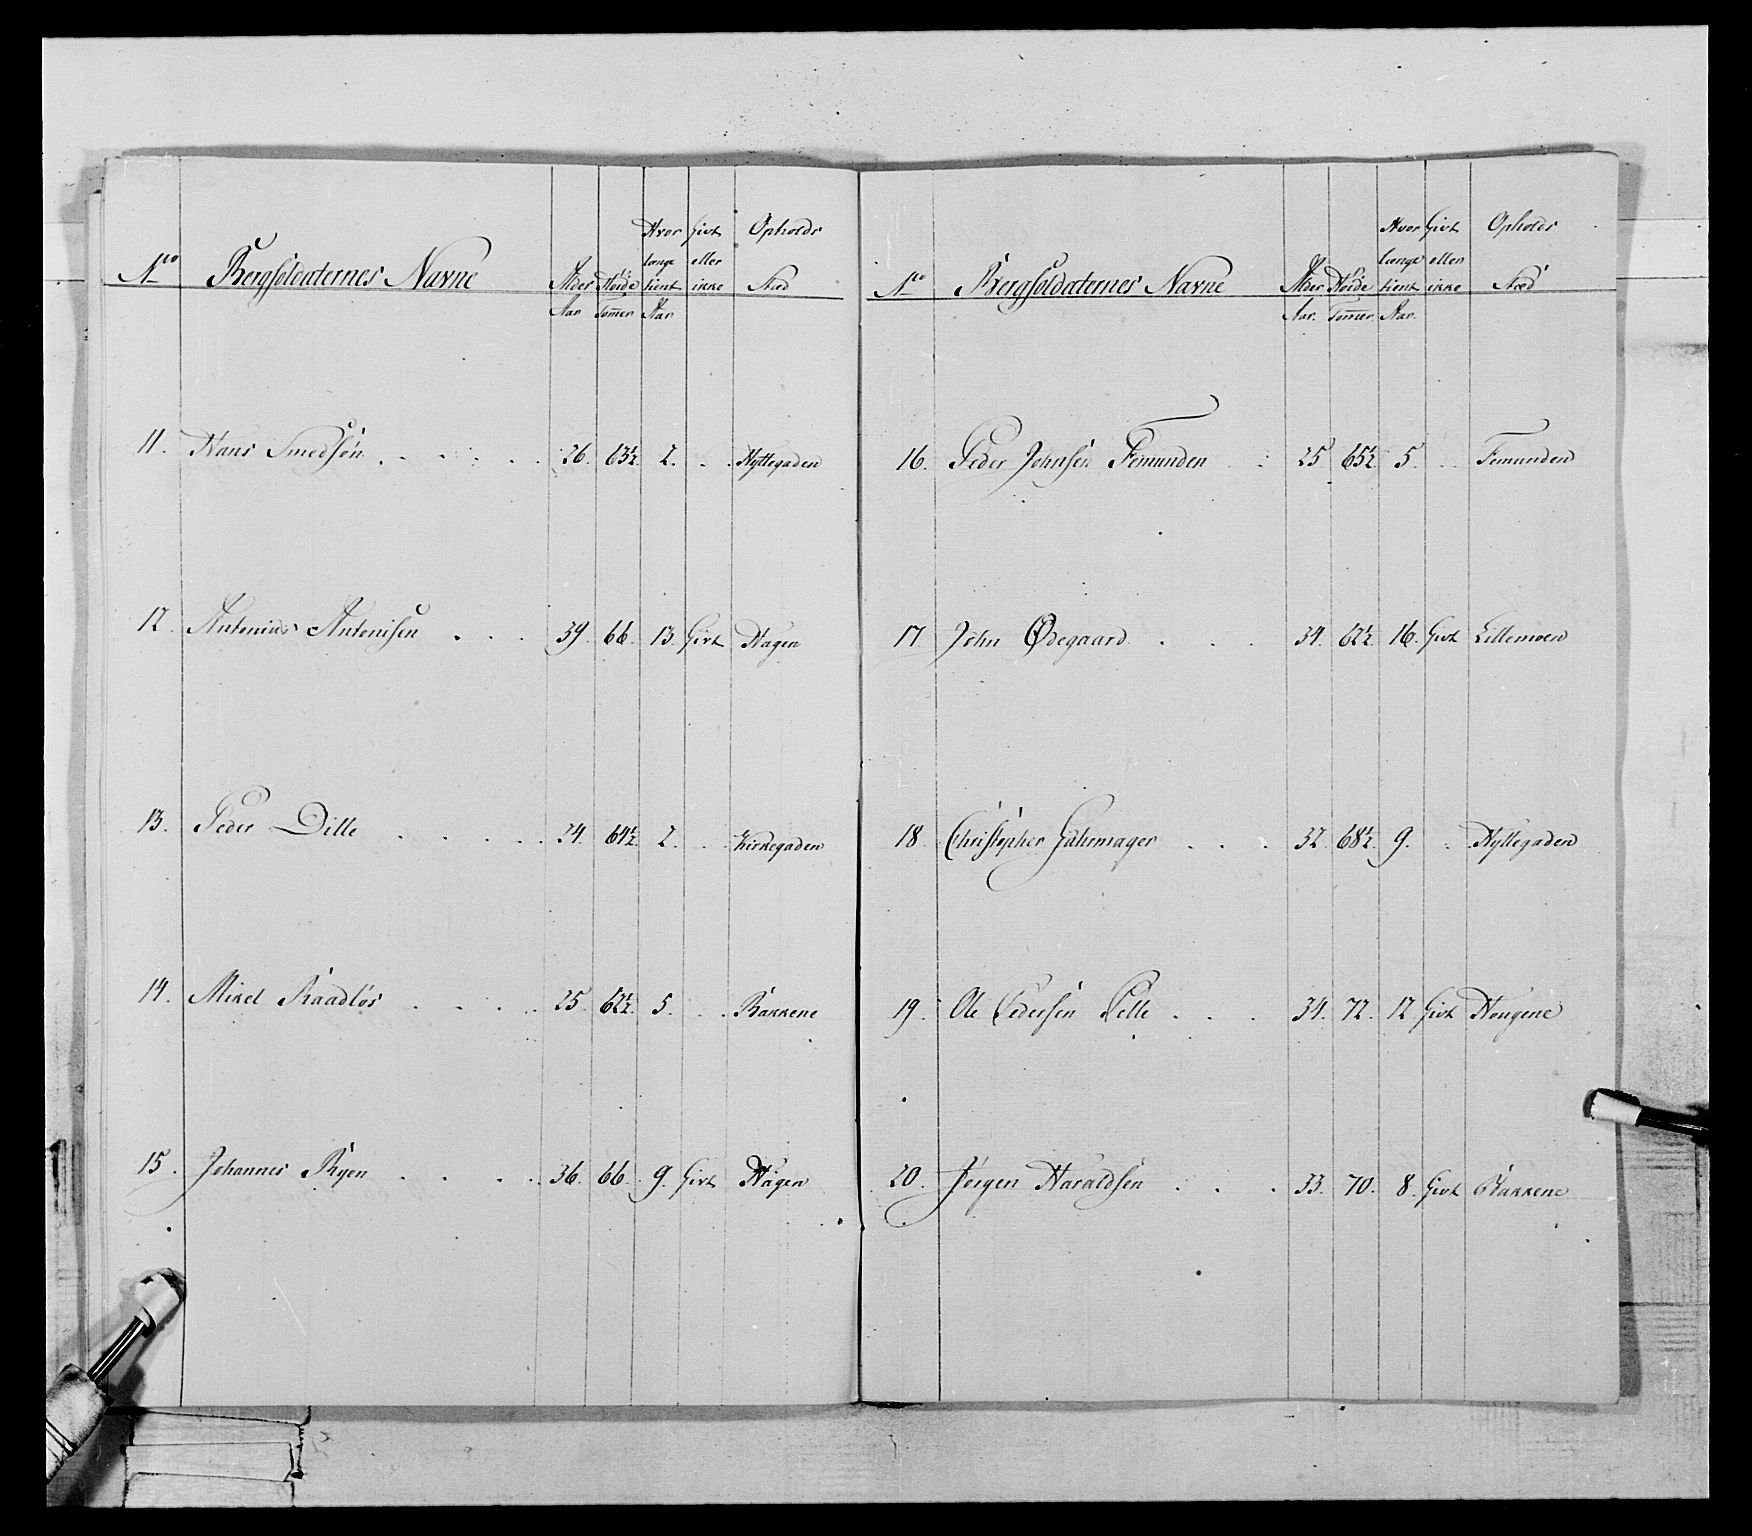 No Bergsoldaternes Navne Alder Aar Høide Tommer Hvor længe tient Aar Givt eller ikke Opholds Stæd
11. Hans Smedsøn 26. 63½ 2. Hyttegaden
12. Antonius Antonisen 39. 66. 13. Givt Hagen
13. Peder Dille 24. 64½ 2. Kirkegaden
14. Mikel Raadløs 25. 62½ 5. Bakkene
15. Johannes Ryen 36. 66. 9. Givt Hagen
No Bergsoldaternes Navne Alder Aar. Høide Tommer. Hvor længe tient Aar. Givt eller ikke Opholds Stæd
16. Peder Johnsen Femunden 25 65½ 5. Femunden
17. John Ødegaard 34. 62½ 16. Givt Lillemoen
18. Christopher 32 68½ 9. Hyttegaden
19. Ole Pedersen 34. 72. 12 Givt Hougene
20. Jørgen Haraldsen 33. 70. 8. Givt Bakkene